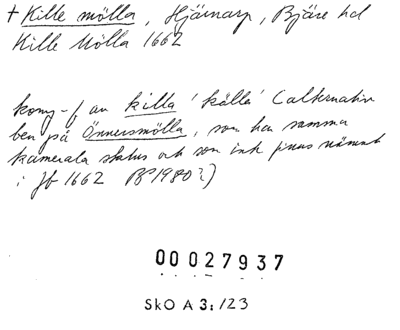 † Kille mölla, Hjärnarp, Bjäre hd
Kille Mölla 1662
komp-f av killa 'källa' (alternativ
ben på Önnersmölla, som har samma
kamerala status och som inte finns nämnt
i Jb 1662 BP 1980?)
00027937
SkO A 3:/23